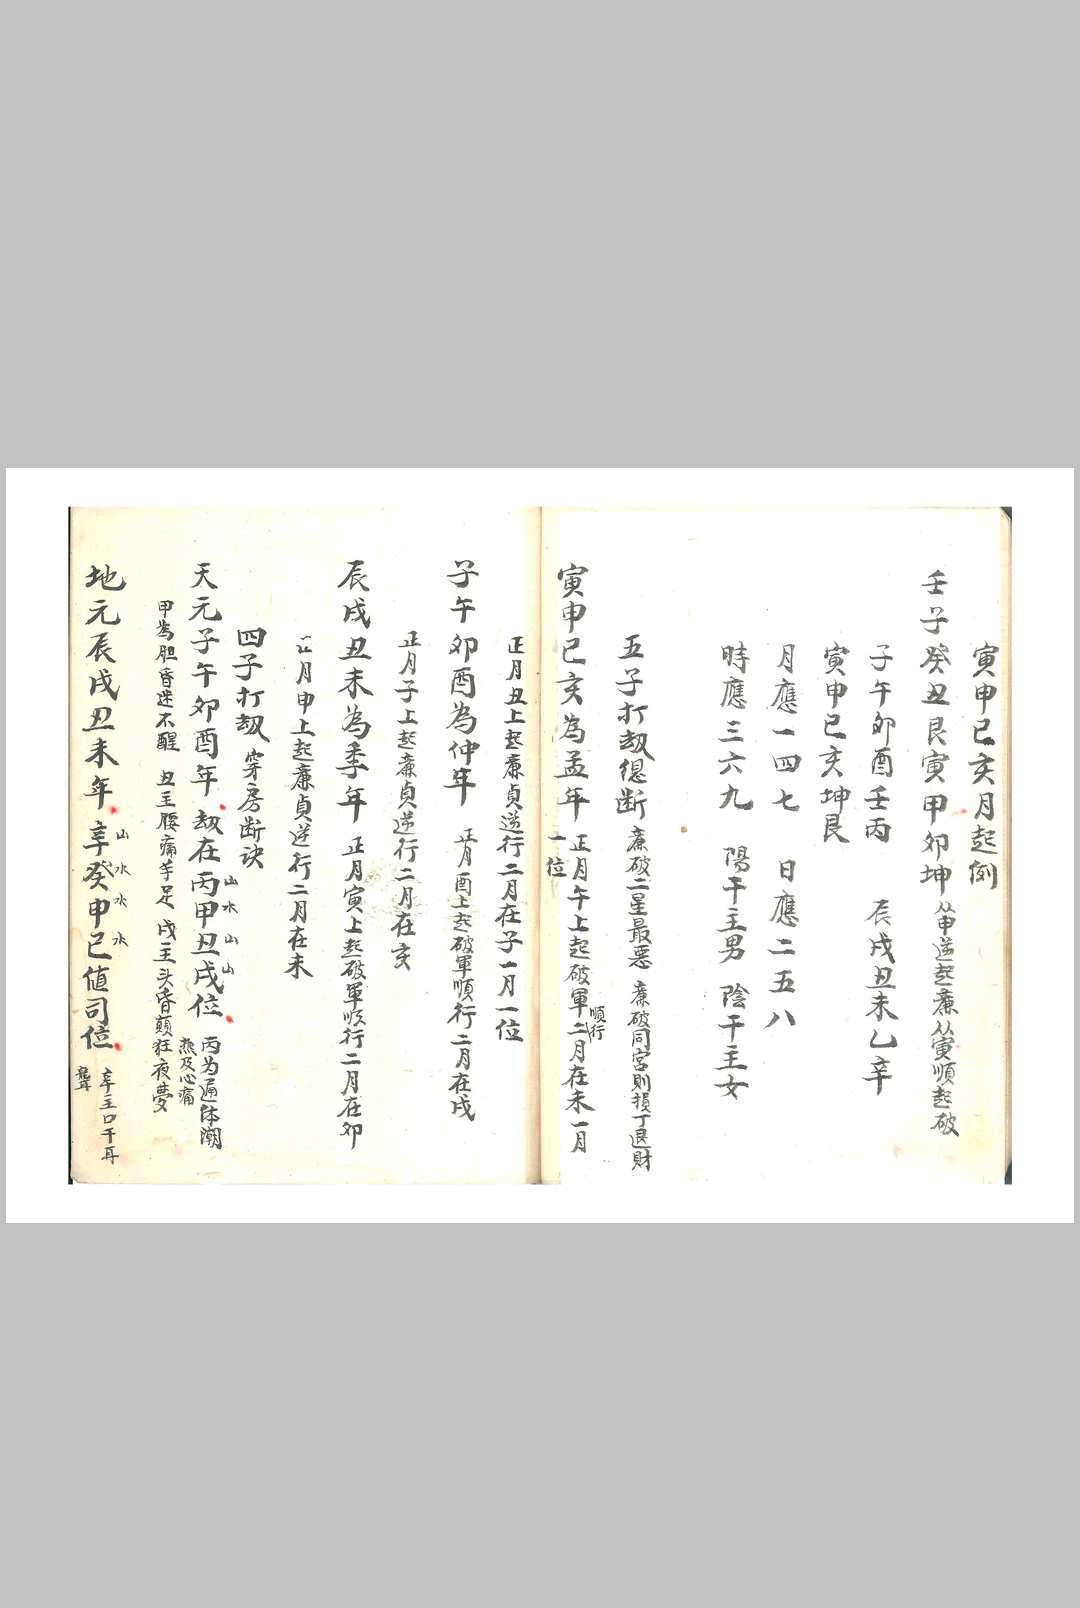 寅申巳亥月起例
壬子癸丑艮寅甲卯坤 从申逆起廉 从寅順起破
子午卯酉壬丙 辰戌丑未乙辛
寅申巳亥坤艮
月應一四七 日應二五八
時應三六九 陽干主男 陰干主女
五子打劫總断 廉破二星最悪 廉破同宮則損丁退財
寅申巳亥為孟年 正月午上起破軍順行二月在未一月
一位
正月丑上起廉貞逆行二月在子一月一位
子午卯酉為仲年 正月酉上起破軍順行二月在戌
正月子上起廉貞逆行二月在亥
辰戌丑未為季年 正月寅上起破軍順行二月在卯
正月申上起廉貞逆行二月在未
四子打劫 穿房断诀
天元子午卯酉年 劫在丙甲丑戌位 丙为遍体潮
山水山山
热及心痛
甲為胆昏迷不醒 丑主腰痛手足 戌主头昏顛狂夜夢
地元辰戌丑未年 辛癸申巳値司位 辛主口干耳
山水水水
聾